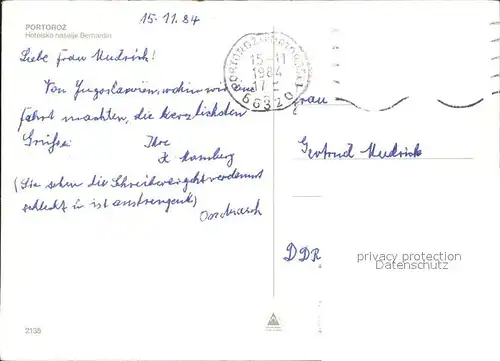 15.11.84
PORTOROŽ
Hotelsko naselje Bernardin
Liebe Frau Mudrick!
Von Jugoslawien, wohin wir eine
Fahrt machten, die herzlichsten
Grüße Ihre
(Sie sehen die Schreiberei geht verdammt
schlecht u. ist anstrengend)
PORTOROŽ
15-11
1984
17
66320
Frau
Gertrud Mudrick
DDR
privacy protection
Datenschutz
2135